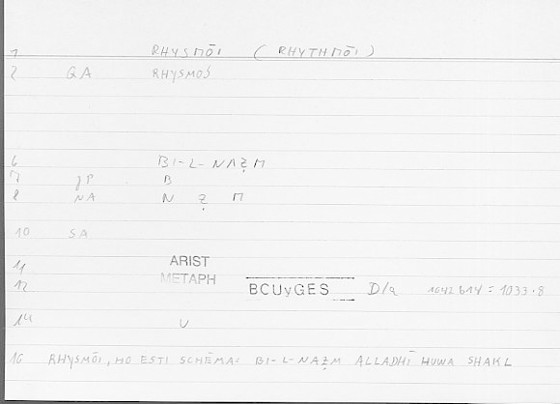 1 RHYSMŌI (RHYTHMŌI)
2 GA RHYSMOS
6 BI-L-NAẒM
7 gP B
8 NA N Ẓ M
10 SA
11 ARIST
12 METAPH BCUyGES D/a 1042b14 = 1033.8
14 V
16 RHYSMŌI, HO ESTI SCHĒMA = BI-L-NAẒM ALLADHĪ HUWA SHAKL